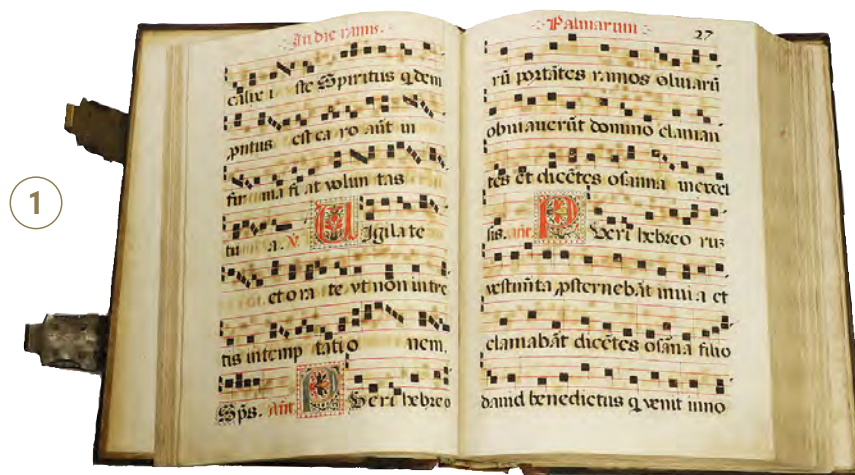 1
In die ramis.
calix iste Spiritus qdem
ptus est caro aūt in
firma fiat voluntas
tua. V. Uigilate
et orate vt non intre
tis in temptatio nem.
Sp̄s. Añt Pueri hebreo
Palmarum 27
rū portātes ramos oliuarū
obuiauerūt domino claman
tes et dicētes osanna in excel
sis. añt Pueri hebreo ruz
vestimēta psternebāt in uia et
clamabāt dicētes osāna filio
dauid benedictus q venit in no